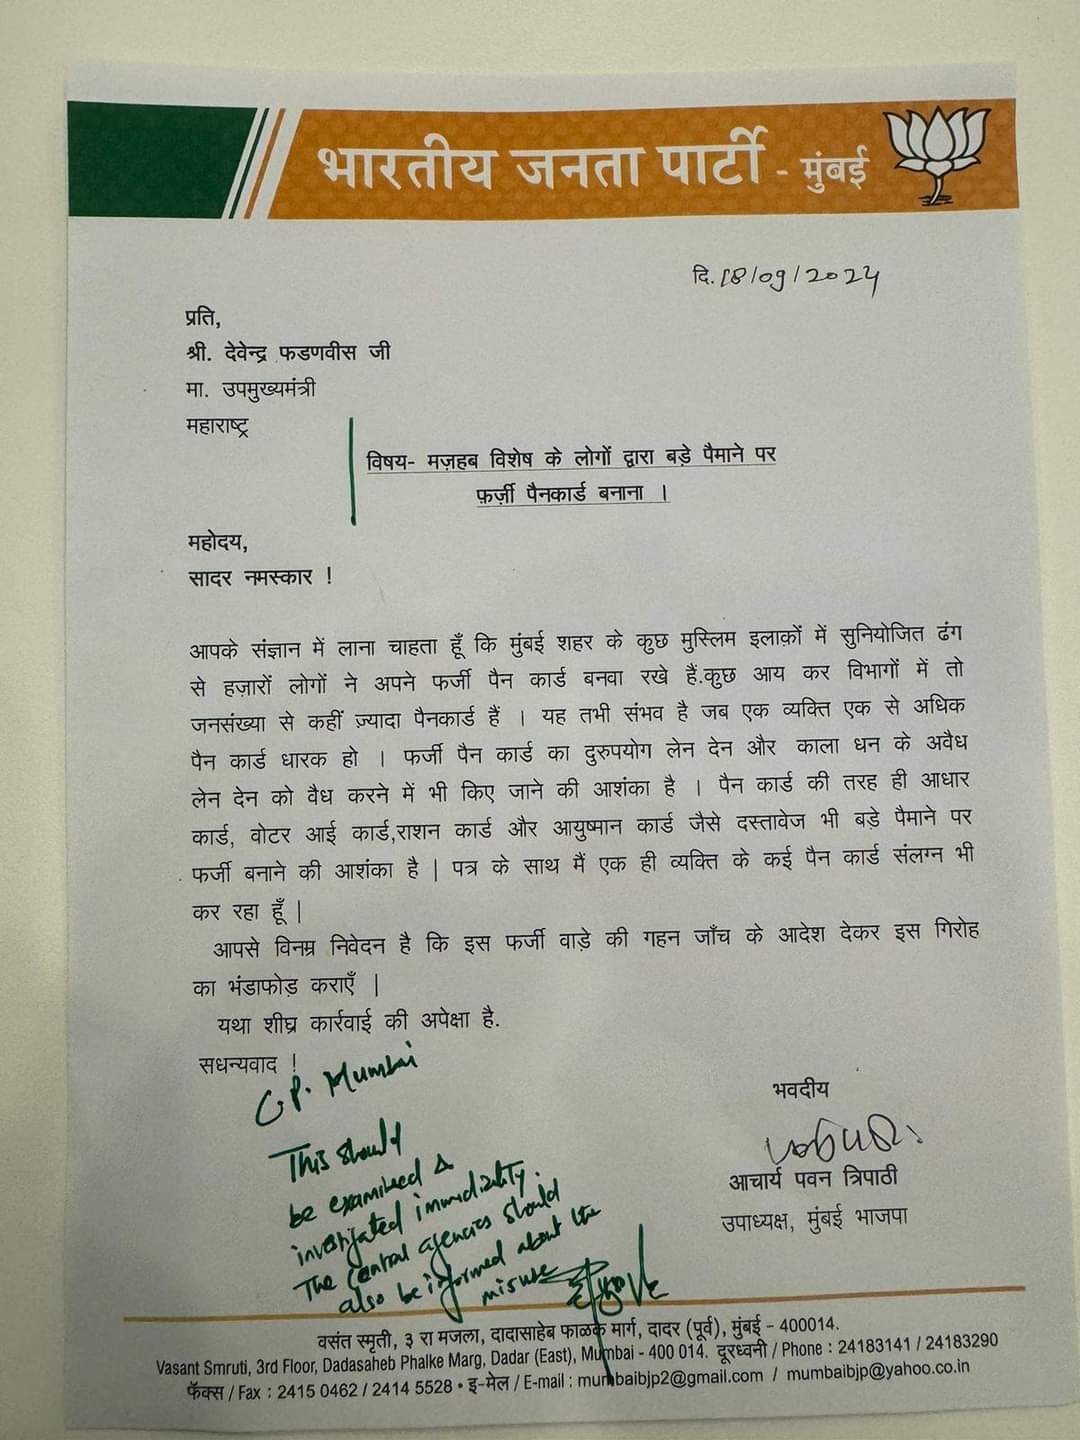 भारतीय जनता पार्टी - मुंबई
दि. 18/09/2024
प्रति,
श्री. देवेन्द्र फडणवीस जी
मा. उपमुख्यमंत्री
महाराष्ट्र
विषय- मज़हब विशेष के लोगों द्वारा बड़े पैमाने पर
फ़र्ज़ी पैनकार्ड बनाना ।
महोदय,
सादर नमस्कार !
आपके संज्ञान में लाना चाहता हूँ कि मुंबई शहर के कुछ मुस्लिम इलाक़ों में सुनियोजित ढंग
से हज़ारों लोगों ने अपने फर्जी पैन कार्ड बनवा रखे हैं.कुछ आय कर विभागों में तो
जनसंख्या से कहीं ज़्यादा पैनकार्ड हैं । यह तभी संभव है जब एक व्यक्ति एक से अधिक
पैन कार्ड धारक हो । फर्जी पैन कार्ड का दुरुपयोग लेन देन और काला धन के अवैध
लेन देन को वैध करने में भी किए जाने की आशंका है । पैन कार्ड की तरह ही आधार
कार्ड, वोटर आई कार्ड,राशन कार्ड और आयुष्मान कार्ड जैसे दस्तावेज भी बड़े पैमाने पर
फर्जी बनाने की आशंका है | पत्र के साथ मैं एक ही व्यक्ति के कई पैन कार्ड संलग्न भी
कर रहा हूँ |
आपसे विनम्र निवेदन है कि इस फर्जी वाड़े की गहन जाँच के आदेश देकर इस गिरोह
का भंडाफोड़ कराएँ |
यथा शीघ्र कार्रवाई की अपेक्षा है.
सधन्यवाद !
C.P. Mumbai
This should
be examined &
investigated immediately.
The Central agencies should
also be informed about the
misuse
भवदीय
आचार्य पवन त्रिपाठी
उपाध्यक्ष, मुंबई भाजपा
वसंत स्मृती, ३ रा मजला, दादासाहेब फाळके मार्ग, दादर (पूर्व), मुंबई - 400014.
Vasant Smruti, 3rd Floor, Dadasaheb Phalke Marg, Dadar (East), Mumbai - 400 014. दूरध्वनी / Phone : 24183141 / 24183290
फॅक्स / Fax : 2415 0462 / 2414 5528 • इ-मेल / E-mail : mumbaibjp2@gmail.com / mumbaibjp@yahoo.co.in